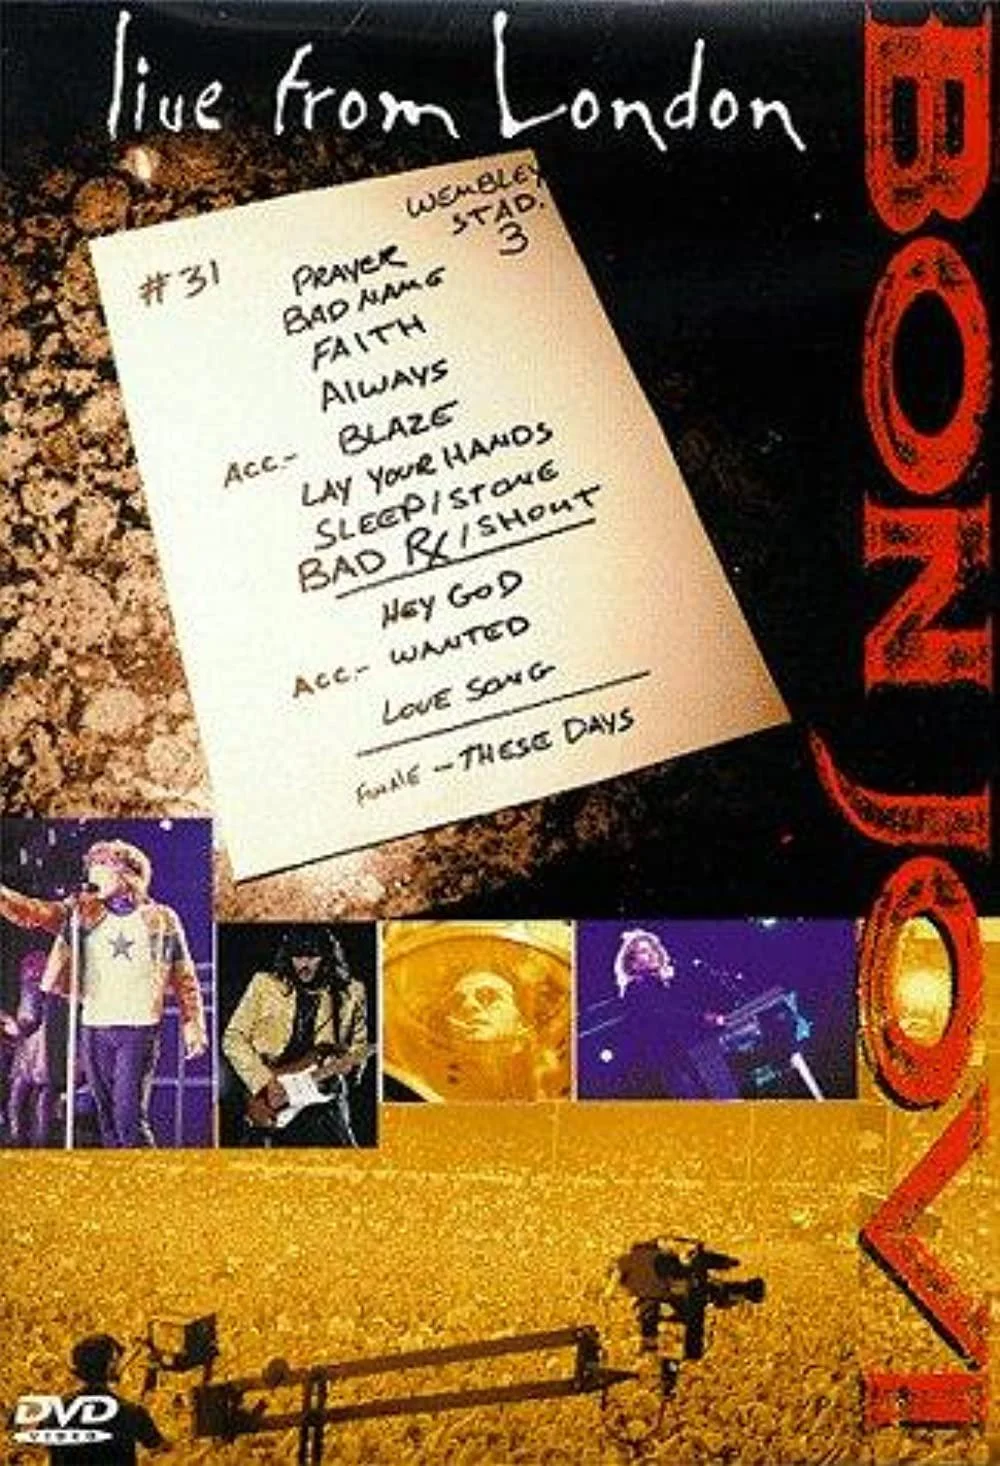 live from London
BON JOVI
WEMBLEY
STAD.
3
#31
PRAYER
BAD NAME
FAITH
AlWAYS
ACC.- BLAZE
LAY YOUR HANDS
SLEEP/STONE
BAD RX/SHOUT
HEY GOD
ACC.- WANTED
LOVE SONG
- THESE DAYS
DVD
VIDEO